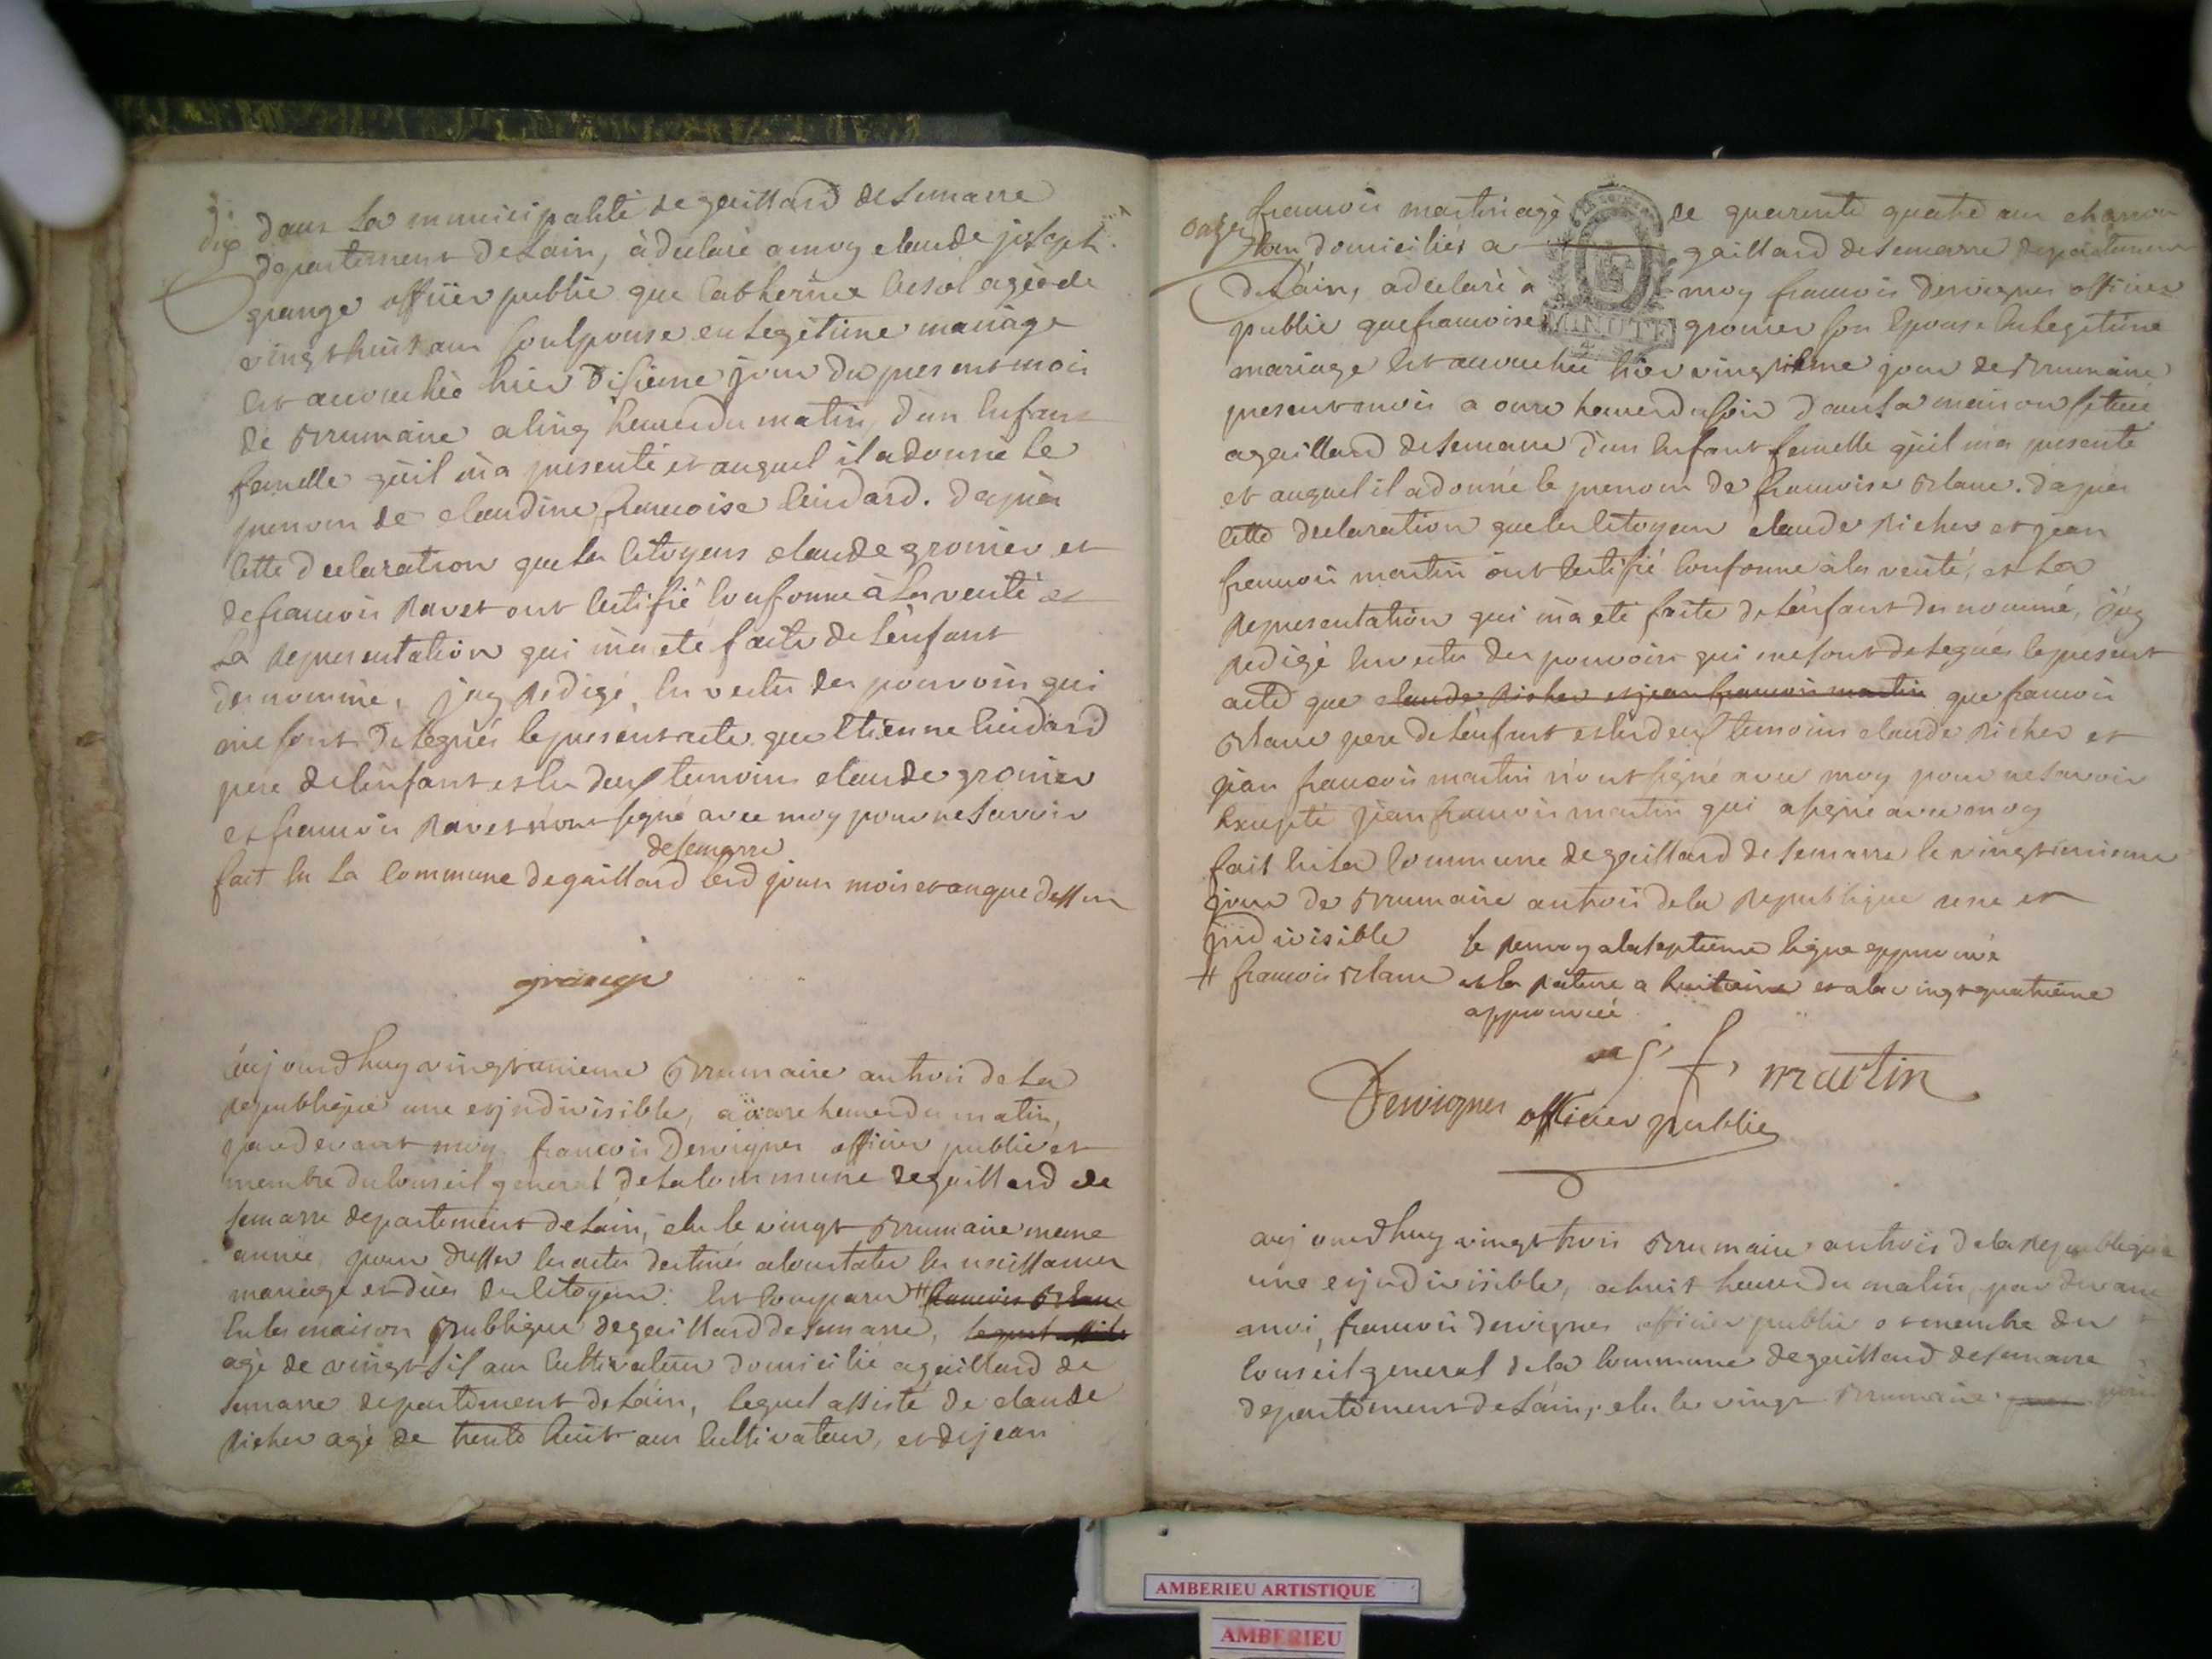 dix
dans la municipalité de gaillard de semarre
departement de Lain, à déclaré a moy claude joseph
grange officier public que Catherine agée de
vingt huit ans son epouse en legitime mariage
est accouchée hier disieme jour du present mois
de Brumaire a cinq heures du matin, d'un enfant
femelle quil m'a presenté et auquel il a donné le
prenom de claudine francoise cuidard. dapres
cette declaration que les citoyens claude gronier et
de francois Ravet ont certifié conforme à la verité et
La Representation qui ma eté faite de L'enfant
denommé, jay Redigé en vertu des pouvoirs qui
me sont delegués le present acte que Etienne cuidard
pere de lenfant et les deux temoins claude gronier
et francois Ravet n'ont signé avec moy pour ne savoir
de semarre
fait en La Commune de gaillard lesd jours mois et an que dessus
grange
aujourdhuy vingt unieme Brumaire an trois de La
republique une et indivisible, a onze heures du matin,
pardevant moy francois Dervignes officier public et
membre du conseil general de la commune de gaillard de
semarre departement de Lain, elu le vingt Brumaire meme
année, pour dresser les actes destinés a constater les naissances
mariage et décés des citoyens. est comparu # francois Blanc
en la maison publique de gaillard de semarre, lequel assisté
agé de vingt six ans cultivateur domicilié a gaillard de
semarre departement de Lain, lequel assisté de claude
Richer agé de trente huit ans cultivateur, et de jean
onze
francois martin agé de quarente quatre ans
domiciliés a gaillard de semarre departement
de Lain, a declaré à moy francois Dervignes officier
MINUTE
public que francoise gronier son epouse en legitime
mariage est accouchée hier vingtieme jour de Brumaire
present mois a onze heures du soir dans sa maison située
a gaillard de semarre d'un enfant femelle quil ma presenté
et auquel il a donné le prenom de francoise Blanc. dapres
cette declaration que les citoyens claude Richer et jean
francois martin ont certifié conforme à la verité, et La
Representation qui m'a eté faite de L'enfant denommé, j'ay
Redigé en vertu des pouvoirs qui me sont delegués le present
acte que claude Richer et jean francois martin que francois
Blanc pere de L'enfant et les deux temoins claude Richer et
jean francois martin n'ont signé avec moy pour ne savoir
Excepté jean francois martin qui a signé avec moy
fait en La Commune de gaillard de semarre le vingt unieme
jour de Brumaire an trois de la Republique une et
indivisible le Renvoy a la septieme ligne approuvé
# francois Blanc et la Rature a huitieme et a la vingt quatrieme
approuvée
j f martin
Dervignes officier public
aujourdhuy vingt trois Brumaire an trois de la Republique
une et indivisible, a huit heures du matin, par devant
moi, francois dervignes officier public et membre du
conseil general de la commune de gaillard de semarre
departement de Lain, elu le vingt Brumaire
AMBERIEU ARTISTIQUE
AMBERIEU